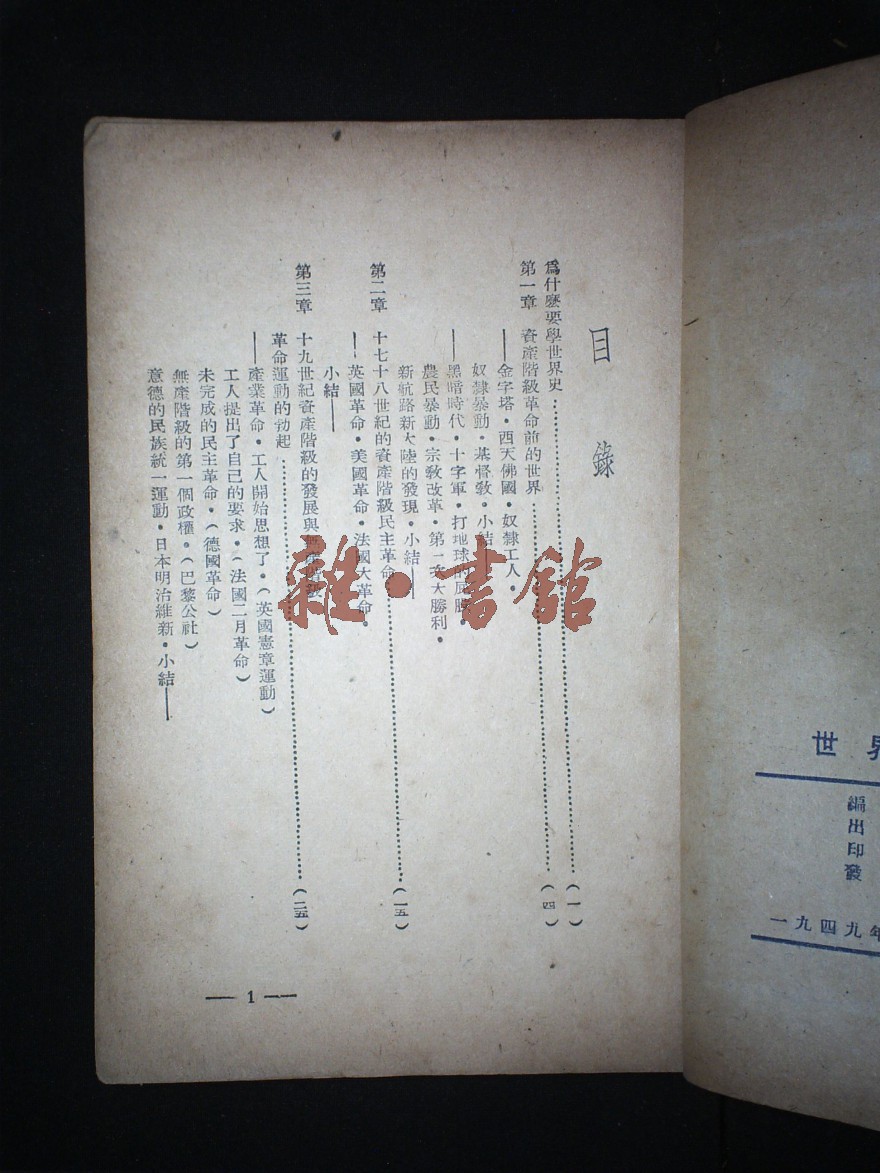 目錄
爲什麽要學世界史……(一)
第一章 資產階級革命前的世界……(四)
——金字塔·西天佛國·奴隸工人·
奴隸暴動·基督敎·小結——
——黑暗時代·十字軍·打地球的
農民暴動·宗敎改革·第一次大勝利·
新航路新大陸的發現·小結——
第二章 十七十八世紀的資產階級民主革命……(一五)
——英國革命·美國革命·法國大革命·
小結——
第三章 十九世紀資產階級的發展與
革命運動的勃起……(二五)
——產業革命·工人開始思想了·(英國憲章運動)
工人提出了自己的要求·(法國二月革命)
未完成的民主革命·(德國革命)
無產階級的第一個政權。(巴黎公社)
意德的民族統一運動·日本明治維新·小結——
— 1 —
雜·書館
世界
編
出
印
發
一九四九年